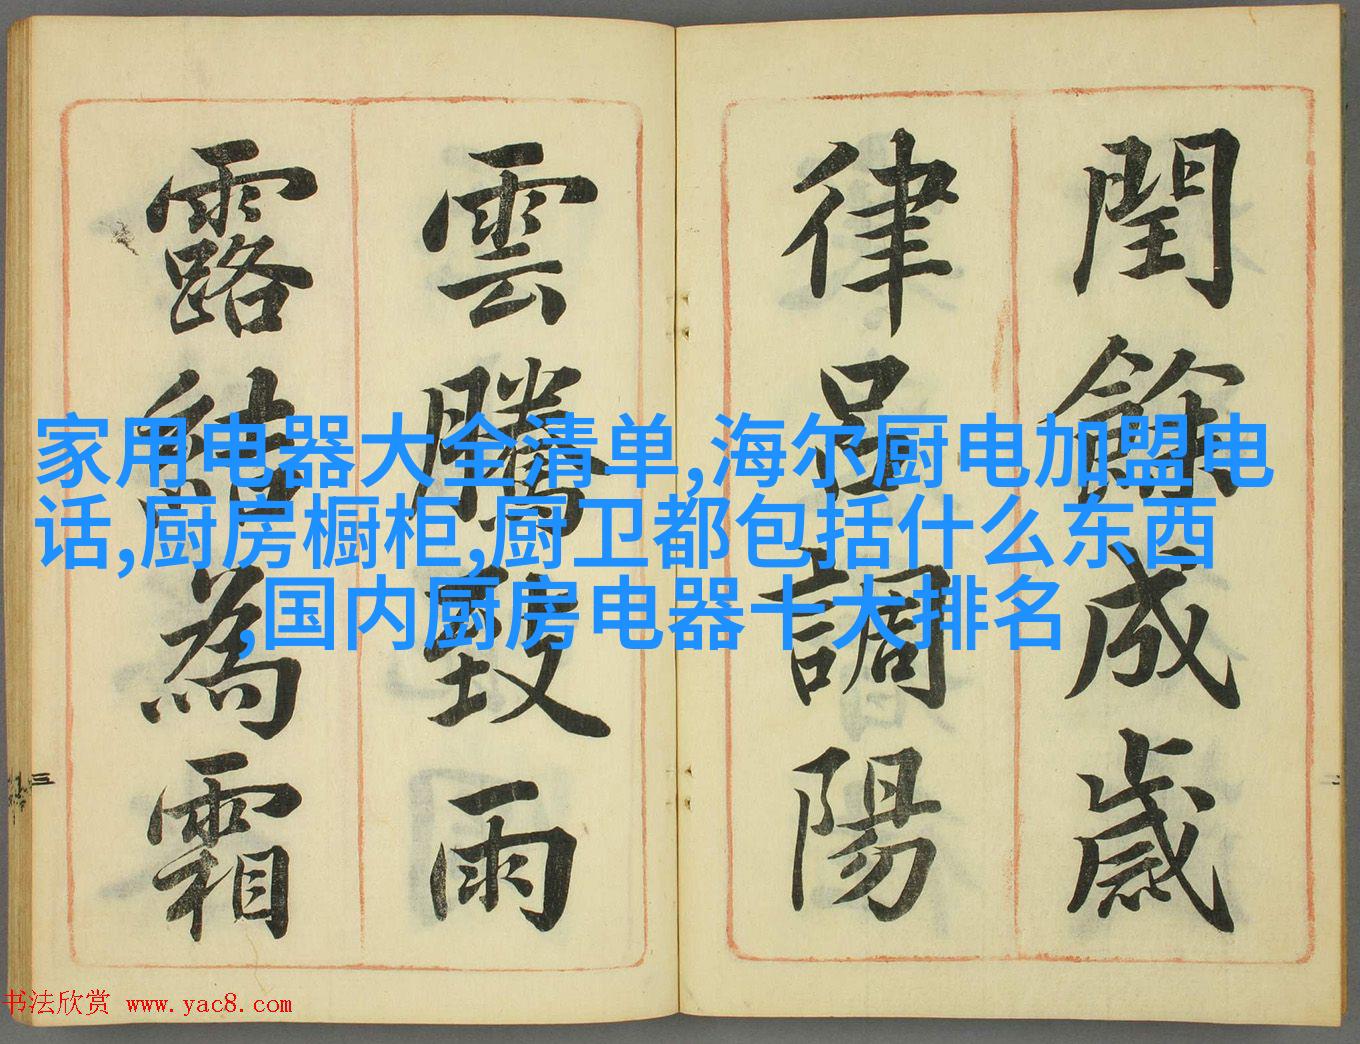 閏餘成歲
律呂調陽
雲騰致雨
露結為霜
家用电器大全清单,海尔厨电加盟电
话,厨房橱柜,厨卫都包括什么东西
,国内厨房电器十大排名
三
二
书法欣赏 www.yac8.com